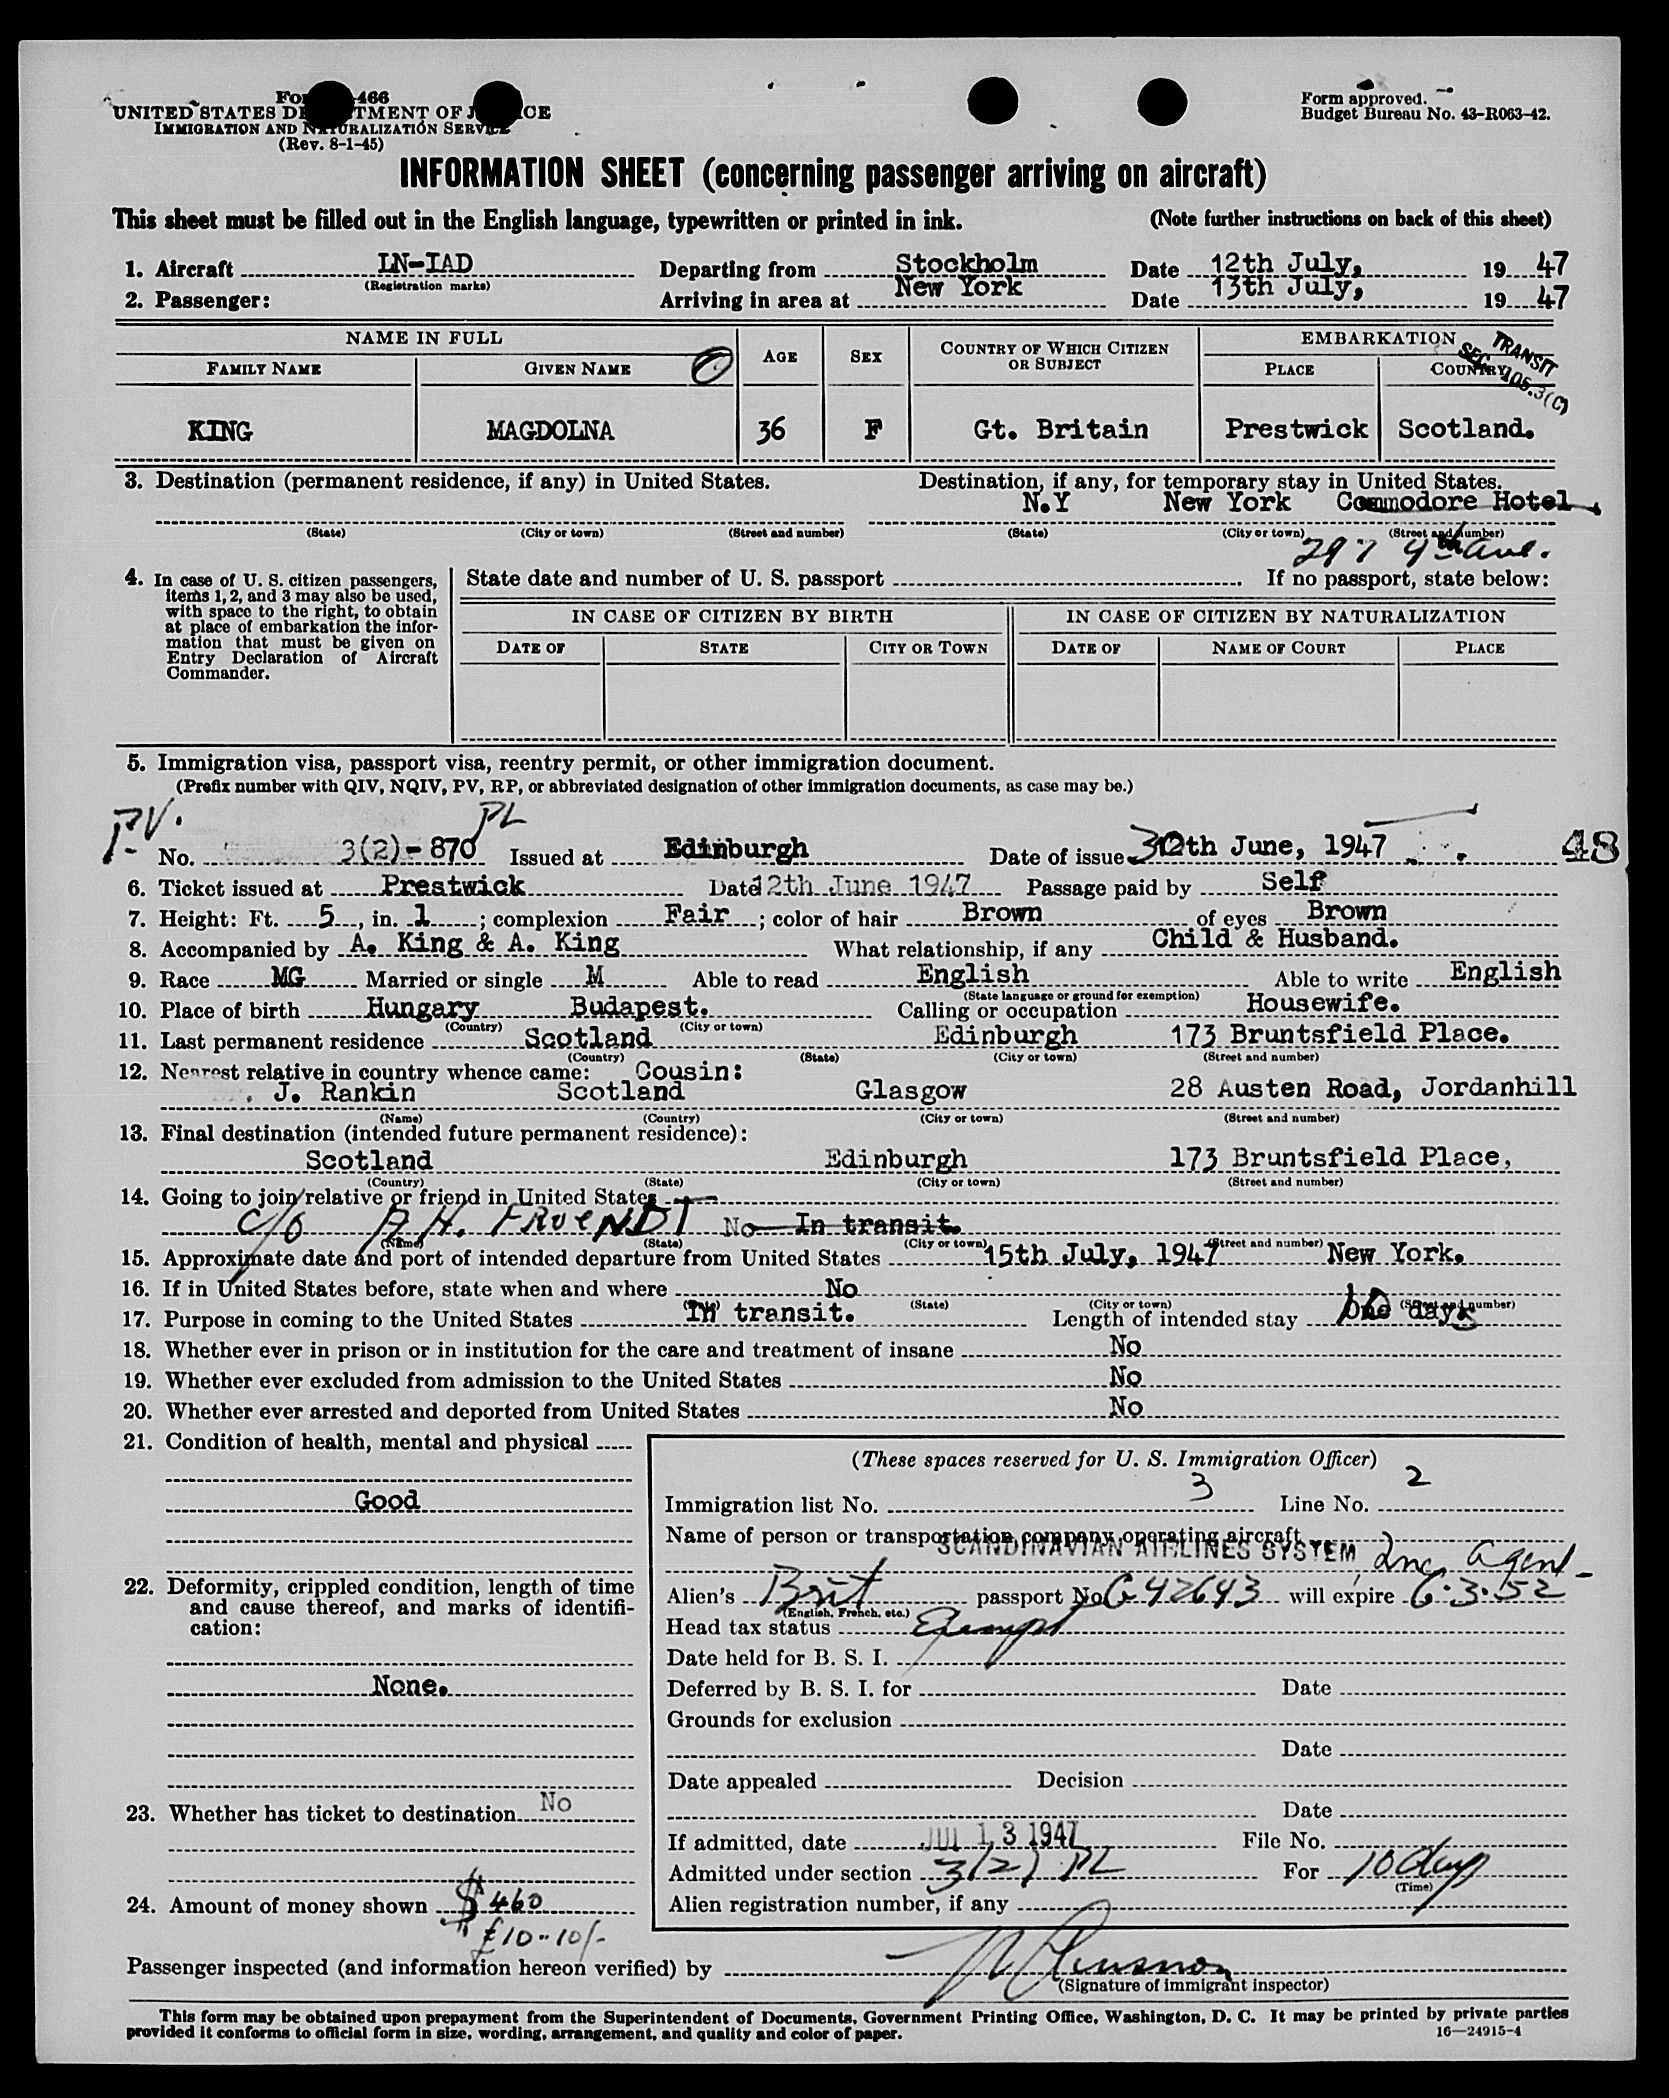 466
UNITED STATES DEPARTMENT OF JUSTICE
IMMIGRATION AND NATURALIZATION SERVICE
(Rev. 8-1-45)
Form approved.
Budget Bureau No. 43-R063-42.
INFORMATION SHEET (concerning passenger arriving on aircraft)
This sheet must be filled out in the English language, typewritten or printed in ink. (Note further instructions on back of this sheet)
1. Aircraft LN-IAD Departing from Stockholm Date 12th July, 1947
(Registration marks)
2. Passenger: Arriving in area at New York Date 13th July, 1947
NAME IN FULL AGE SEX COUNTRY OF WHICH CITIZEN OR SUBJECT EMBARKATION
FAMILY NAME GIVEN NAME PLACE COUNTRY
TRANSIT
SEC. 105.3(C)
KING MAGDOLNA 36 F Gt. Britain Prestwick Scotland.
3. Destination (permanent residence, if any) in United States. Destination, if any, for temporary stay in United States.
N.Y New York Commodore Hotel
(State) (City or town) (Street and number) (State) (City or town) (Street and number)
297 4th Ave.
4. In case of U. S. citizen passengers, items 1, 2, and 3 may also be used, with space to the right, to obtain at place of embarkation the information that must be given on Entry Declaration of Aircraft Commander.
State date and number of U. S. passport If no passport, state below:
IN CASE OF CITIZEN BY BIRTH IN CASE OF CITIZEN BY NATURALIZATION
DATE OF STATE CITY OR TOWN DATE OF NAME OF COURT PLACE
5. Immigration visa, passport visa, reentry permit, or other immigration document.
(Prefix number with QIV, NQIV, PV, RP, or abbreviated designation of other immigration documents, as case may be.)
PV. PL
No. 3(2)-870 Issued at Edinburgh Date of issue 30th June, 1947 48
6. Ticket issued at Prestwick Date 12th June 1947 Passage paid by Self
7. Height: Ft. 5, in. 1; complexion Fair; color of hair Brown of eyes Brown
8. Accompanied by A. King & A. King What relationship, if any Child & Husband.
9. Race MG Married or single M Able to read English Able to write English
(State language or ground for exemption)
10. Place of birth Hungary Budapest. Calling or occupation Housewife.
(Country) (City or town)
11. Last permanent residence Scotland Edinburgh 173 Bruntsfield Place.
(Country) (State) (City or town) (Street and number)
12. Nearest relative in country whence came: Cousin:
J. Rankin Scotland Glasgow 28 Austen Road, Jordanhill
(Name) (Country) (City or town) (Street and number)
13. Final destination (intended future permanent residence):
Scotland Edinburgh 173 Bruntsfield Place,
(Country) (State) (City or town) (Street and number)
14. Going to join relative or friend in United States
c/o A.H. No In transit.
(Name) (State) (City or town) (Street and number)
15. Approximate date and port of intended departure from United States 15th July, 1947 New York.
16. If in United States before, state when and where No
(State) (City or town) (Street and number)
17. Purpose in coming to the United States In transit. Length of intended stay 10 days
18. Whether ever in prison or in institution for the care and treatment of insane No
19. Whether ever excluded from admission to the United States No
20. Whether ever arrested and deported from United States No
21. Condition of health, mental and physical
Good
22. Deformity, crippled condition, length of time and cause thereof, and marks of identification:
None.
23. Whether has ticket to destination No
24. Amount of money shown $460
£10-10/-
(These spaces reserved for U. S. Immigration Officer)
Immigration list No. 3 Line No. 2
Name of person or transportation company operating aircraft
SCANDINAVIAN AIRLINES SYSTEM, Inc. Agent-
Alien's Brit passport No. C 42643 will expire 6.3.52
(English, French, etc.)
Head tax status Exempt
Date held for B. S. I.
Deferred by B. S. I. for Date
Grounds for exclusion
Date
Date appealed Decision
Date
If admitted, date JUL 13 1947 File No.
Admitted under section 3(2) PL For 10 days
(Time)
Alien registration number, if any
Passenger inspected (and information hereon verified) by
(Signature of immigrant inspector)
This form may be obtained upon prepayment from the Superintendent of Documents, Government Printing Office, Washington, D. C. It may be printed by private parties
provided it conforms to official form in size, wording, arrangement, and quality and color of paper. 16—24915-4